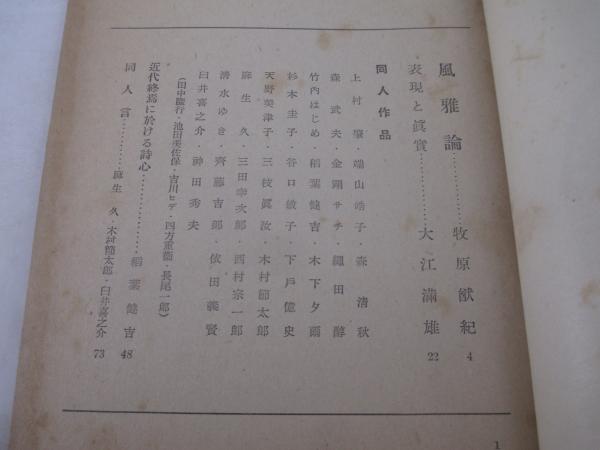 風雅論…………牧原猷紀 4
表現と眞實…………大江滿雄 22
同人作品
上村肇・端山皓子・森清秋
森武夫・金剛サチ・繩田醇
竹内はじめ・稻葉健吉・木下夕爾
杉木圭子・谷口敏子・下戸億史
天野美津子・三枝眞汝・木村節太郎
麻生久・三田幸次郎・西村宗一郎
清水ゆき・齊藤吉郎・依田義賢
臼井喜之介・神田秀夫
(田中慶行・池田美佐保・吉川ヒデ・四方重衞・長尾一郎)
近代終焉に於ける詩心…………稻葉健吉 48
同人言…………麻生久・木村節太郎・臼井喜之介 73
1